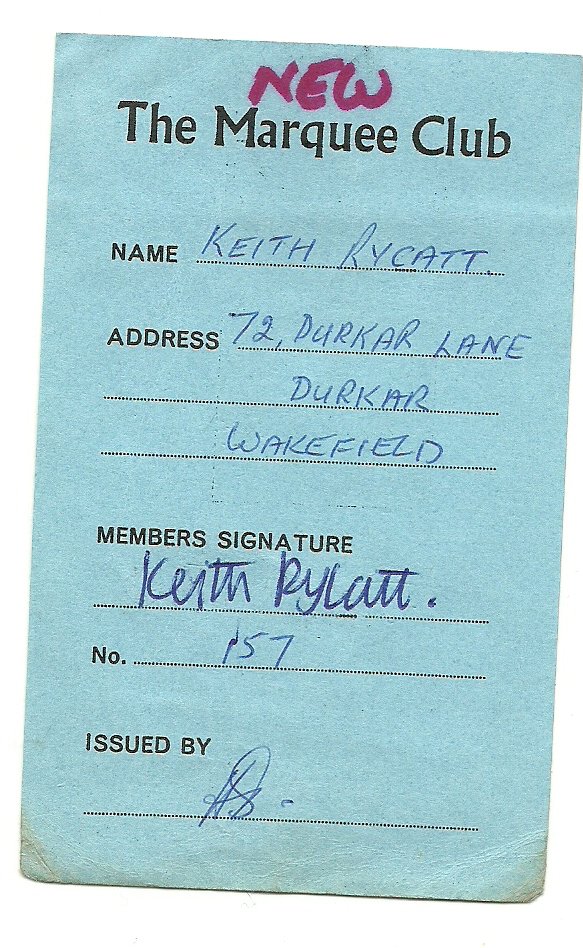 NEW
The Marquee Club
NAME KEITH RYCATT.
ADDRESS 72, DURKAR LANE
DURKAR
WAKEFIELD
MEMBERS SIGNATURE
Keith Rylatt.
No. 157
ISSUED BY